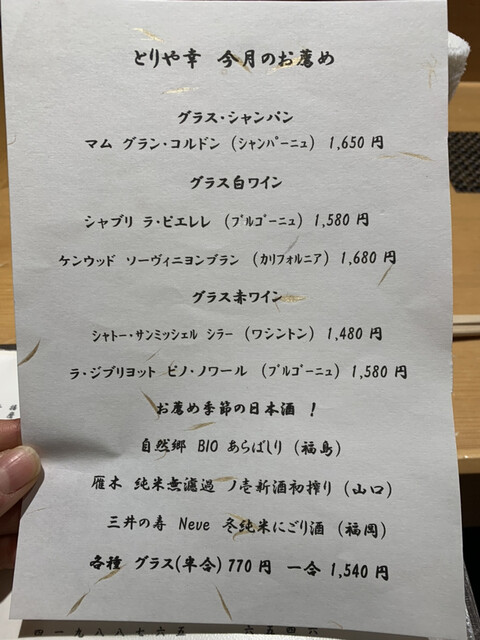 とりや幸 今月のお薦め
グラス・シャンパン
マム グラン・コルドン (シャンパーニュ) 1,650 円
グラス白ワイン
シャブリ ラ・ピエレレ (ブルゴーニュ) 1,580 円
ケンウッド ソーヴィニヨンブラン (カリフォルニア) 1,680 円
グラス赤ワイン
シャトー・サンミッシェル シラー (ワシントン) 1,480 円
ラ・ジブリヨット ピノ・ノワール (ブルゴーニュ) 1,580 円
お薦め季節の日本酒 !
自然郷 BIO あらばしり (福島)
雁木 純米無濾過 ノ壱新酒初搾り (山口)
三井の寿 Neve 冬純米にごり酒 (福岡)
各種 グラス(半合) 770 円 一合 1,540 円